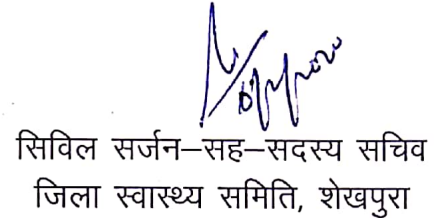 सिविल सर्जन–सह–सदस्य सचिव
जिला स्वास्थ्य समिति, शेखपुरा